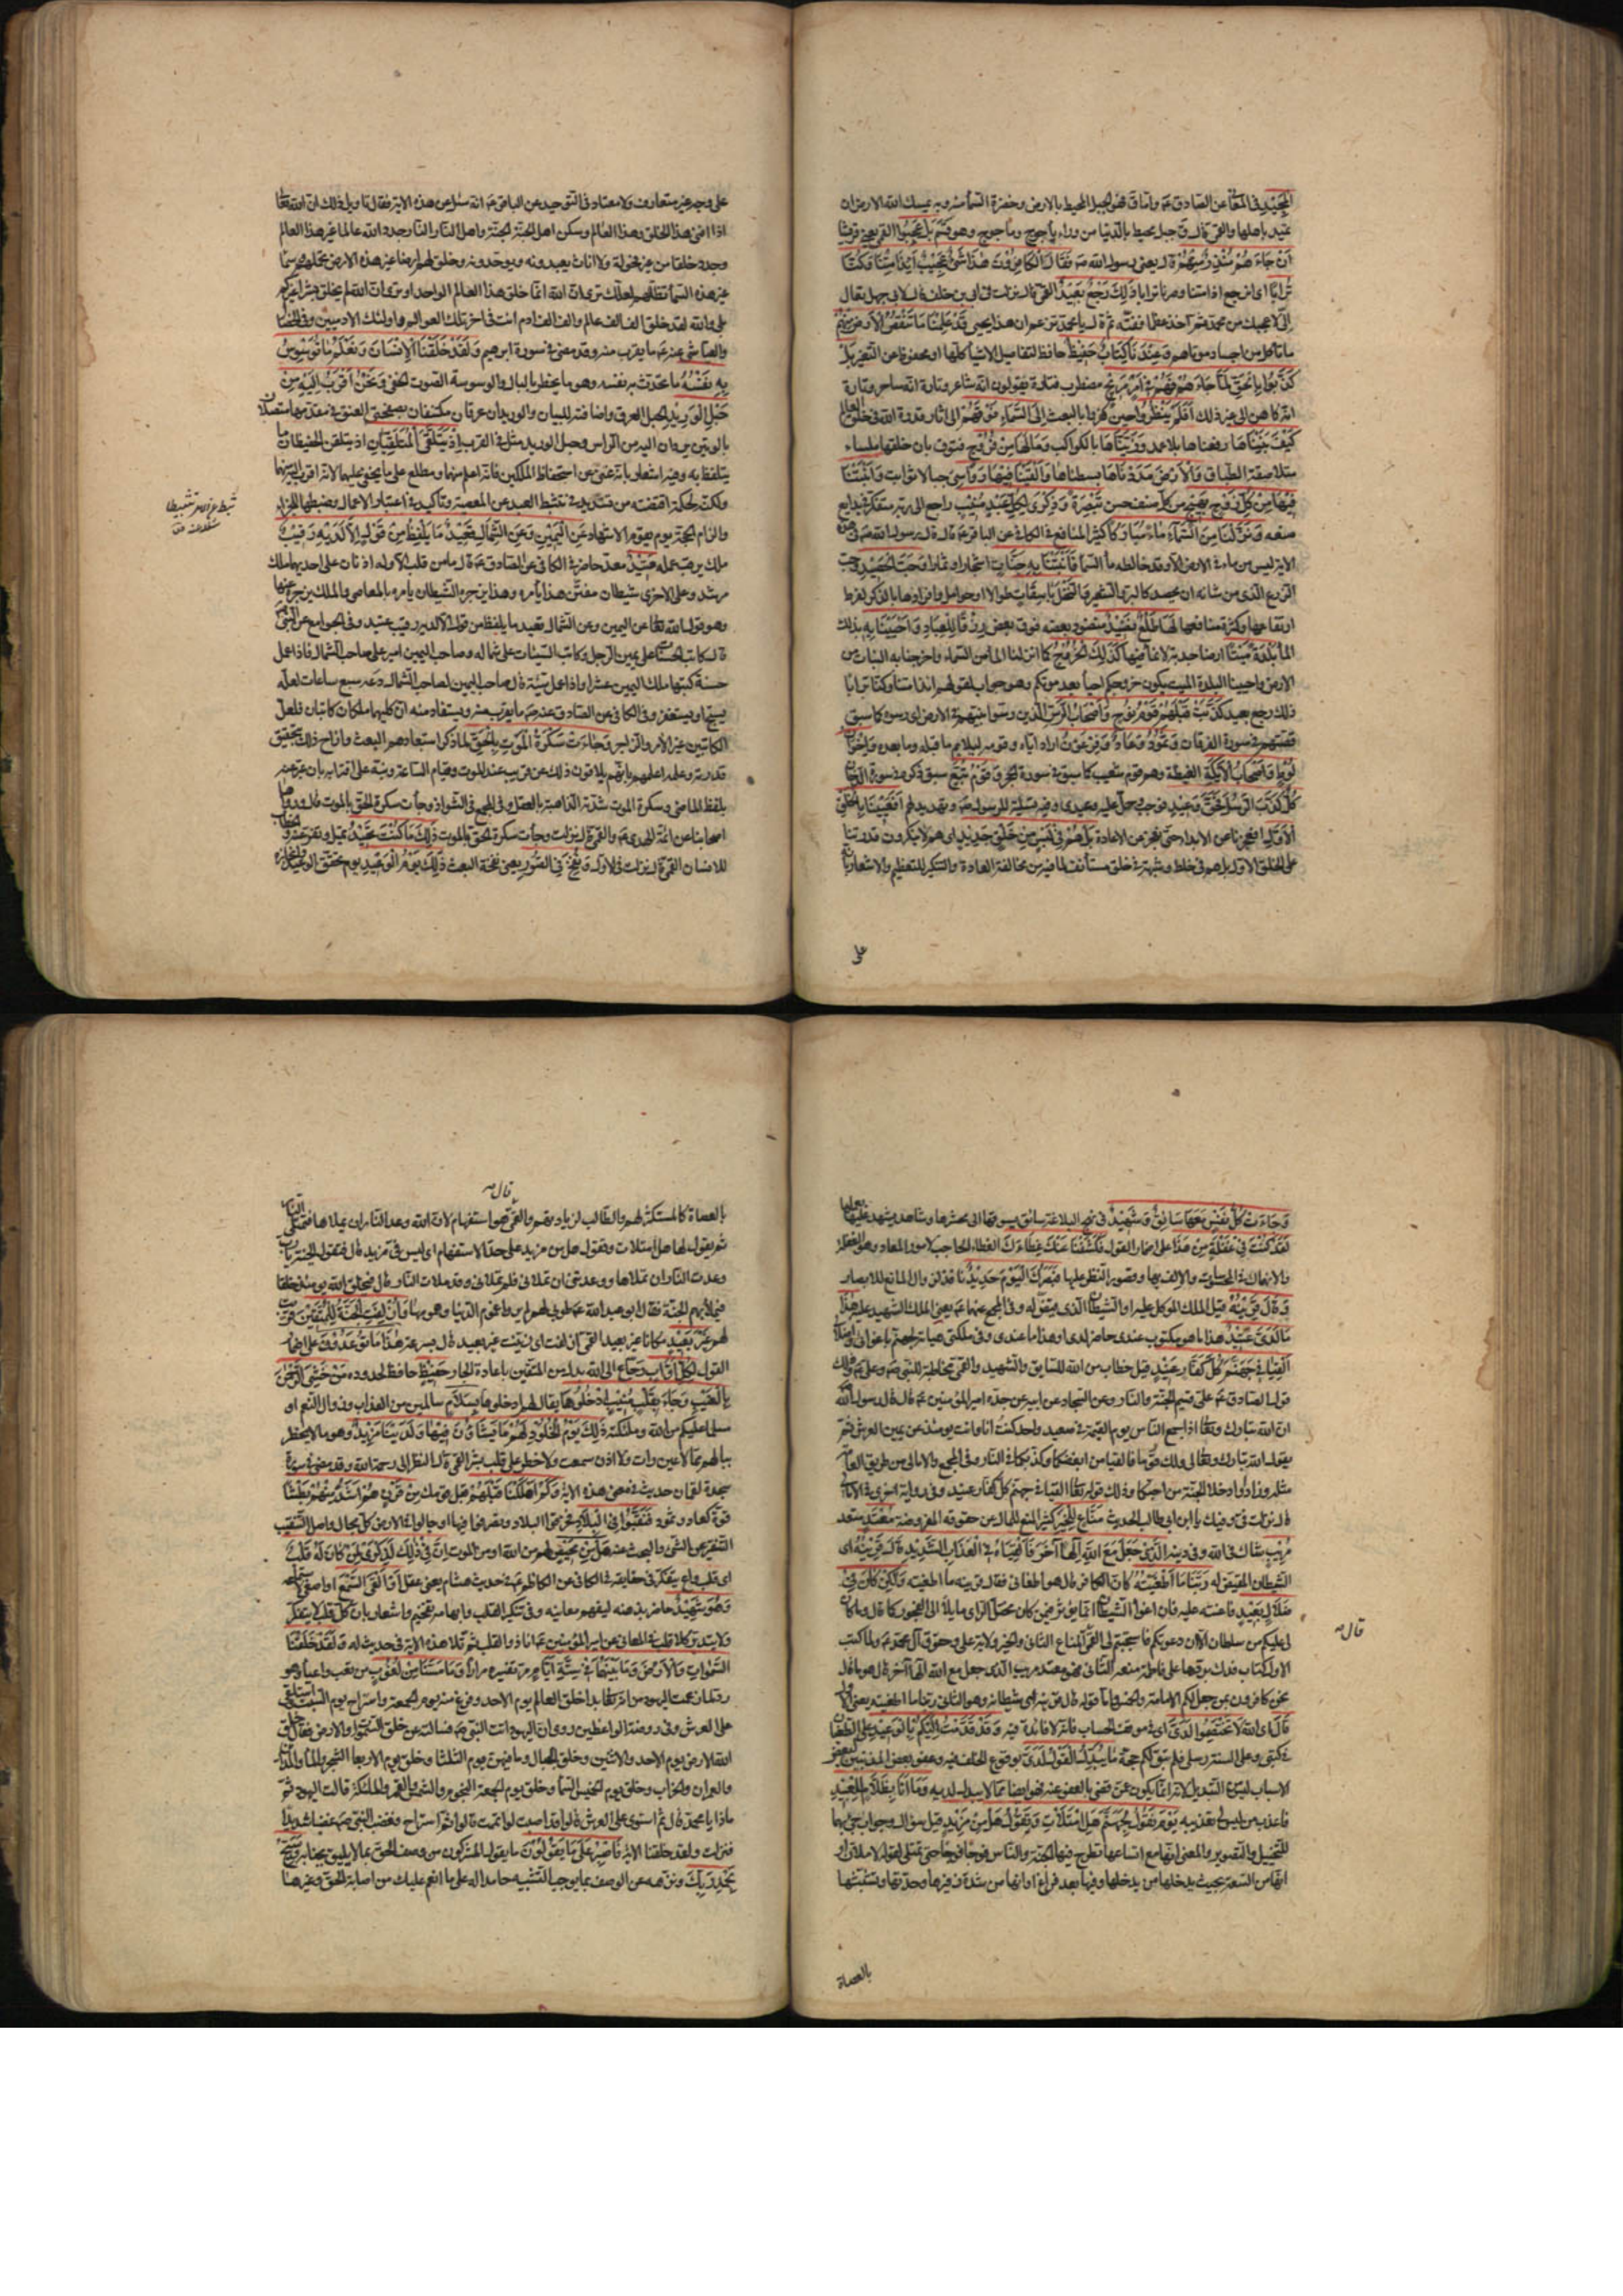 الْمَجِيدِ في المعاني عن الصادق عم واما ق فهو الجبل المحيط بالارض وخضرة السماء منه وبه يمسك الله الارض ان
تميد باهلها والقمي قال ق جبل محيط بالدنيا من وراء يأجوج ومأجوج وهو قسم بَلْ عَجِبُوا القمي يعني قريشا
أَنْ جَاءَهُمْ مُنْذِرٌ مِنْهُمْ قال يعني رسول الله ص فَقَالَ الْكَافِرُونَ هَذَا شَيْءٌ عَجِيبٌ أَئِذَا مِتْنَا وَكُنَّا
تُرَابًا اي انرجع اذا متنا وصرنا ترابا ذَلِكَ رَجْعٌ بَعِيدٌ القمي قال نزلت في ابي بن خلف قال لابي جهل تعال
الي لاعجبك من محمد ثم اخذ عظما ففته ثم قال يا محمد تزعم ان هذا يحيى قَدْ عَلِمْنَا مَا تَنْقُصُ الْأَرْضُ مِنْهُمْ
ما تأكل من اجساد موتاهم وَعِنْدَنَا كِتَابٌ حَفِيظٌ حافظ لتفاصيل الاشياء كلها او محفوظ عن التغيير بَلْ
كَذَّبُوا بِالْحَقِّ لَمَّا جَاءَهُمْ فَهُمْ فِي أَمْرٍ مَرِيجٍ مضطرب فتارة يقولون انه شاعر وتارة انه ساحر وتارة
انه كاهن الى غير ذلك أَفَلَمْ يَنْظُرُوا حين كفروا بالبعث إِلَى السَّمَاءِ فَوْقَهُمْ الى اثار قدرة الله في خلق العالم
كَيْفَ بَنَيْنَاهَا رفعناها بلا عمد وَزَيَّنَّاهَا بالكواكب وَمَا لَهَا مِنْ فُرُوجٍ فتوق بان خلقها ملساء
متلاصقة الطباق وَالْأَرْضَ مَدَدْنَاهَا بسطناها وَأَلْقَيْنَا فِيهَا رَوَاسِيَ جبالا ثوابت وَأَنْبَتْنَا
فِيهَا مِنْ كُلِّ زَوْجٍ بَهِيجٍ من كل صنف حسن تَبْصِرَةً وَذِكْرَى لِكُلِّ عَبْدٍ مُنِيبٍ راجع الى ربه متفكر في بدايع
صنعه وَنَزَّلْنَا مِنَ السَّمَاءِ مَاءً مُبَارَكًا كثير المنافع في الكافي عن الباقر عم قال قال رسول الله ص في هذه
الاية ليس من ماء في الارض الا وقد خالطه ماء السماء فَأَنْبَتْنَا بِهِ جَنَّاتٍ اشجارا وثمارا وَحَبَّ الْحَصِيدِ وحب
الزرع الذي من شأنه ان يحصد كالبر والشعير وَالنَّخْلَ بَاسِقَاتٍ طوالا او حوامل وافرادها بالذكر لفرط
ارتفاعها وكثرة منافعها لَهَا طَلْعٌ نَضِيدٌ منضود بعضه فوق بعض رِزْقًا لِلْعِبَادِ وَأَحْيَيْنَا بِهِ بذلك
الماء بَلْدَةً مَيْتًا ارضا جدبة لا نماء فيها كَذَلِكَ الْخُرُوجُ كما انزلنا الماء من السماء واخرجنا به النبات من
الارض واحيينا البلدة الميت يكون خروجكم احياء بعد موتكم وهو جواب لقولهم ائذا متنا وكنا ترابا
ذلك رجع بعيد كَذَّبَتْ قَبْلَهُمْ قَوْمُ نُوحٍ وَأَصْحَابُ الرَّسِّ الذين رسوا نبيهم في الارض اي رسوه كما سبق
قصتهم في سورة الفرقان وَثَمُودُ وَعَادٌ وَفِرْعَوْنُ اراد اياه وقومه ليلايم ما قبله وما بعده وَإِخْوَانُ
لُوطٍ وَأَصْحَابُ الْأَيْكَةِ الغيظة وهم قوم شعيب كما سبق في سورة الحجر وَقَوْمُ تُبَّعٍ سبق ذكره في سورة الدخان
كُلٌّ كَذَّبَ الرُّسُلَ فَحَقَّ وَعِيدِ فوجب وحل عليه وعيدي وفيه تسلية للرسول ص وتهديد لهم أَفَعَيِينَا بِالْخَلْقِ
الْأَوَّلِ افعجزنا عن الابداء حتى نعجز عن الاعادة بَلْ هُمْ فِي لَبْسٍ مِنْ خَلْقٍ جَدِيدٍ اي هم لا ينكرون قدرتنا
على الخلق الاول بل هم في خلط وشبهة في خلق مستأنف لما فيه من مخالفة العادة والتنكير للتعظيم والاشعار بانه
على
على وجه غير متعارف ولا معتاد في التوحيد عن الباقر عم انه سئل عن هذه الاية فقال تاويل ذلك ان الله تعالى
اذا افنى هذا الخلق وهذا العالم وسكن اهل الجنة الجنة واهل النار النار جدد الله عالما غير هذا العالم
وجدد خلقا من غير فحولة ولا اناث يعبدونه ويوحدونه وخلق لهم ارضا غير هذه الارض تحملهم وسماء
غير هذه السماء تظلهم لعلك ترى ان الله انما خلق هذا العالم الواحد او ترى ان الله لم يخلق بشرا غيركم
بلى والله لقد خلق الف الف عالم والف الف ادم انت في اخر تلك العوالم واولئك الادميين وفي الخصال
والعياشي عنه عم ما يقرب منه وقد مضى في سورة ابرهيم وَلَقَدْ خَلَقْنَا الْإِنْسَانَ وَنَعْلَمُ مَا تُوَسْوِسُ
بِهِ نَفْسُهُ ما تحدث به نفسه وهو ما يخطر بالبال والوسوسة الصوت الخفي وَنَحْنُ أَقْرَبُ إِلَيْهِ مِنْ
حَبْلِ الْوَرِيدِ الحبل العرق واضافته للبيان والوريدان عرقان مكتنفان بصفحتي العنق في مقدمهما متصلان
بالوتين يردان اليه من الراس وحبل الوريد مثل في القرب إِذْ يَتَلَقَّى الْمُتَلَقِّيَانِ اذ يتلقن الحفيظان ما
يتلفظ به وفيه اشعار بانه غني عن استحفاظ الملكين فانه اعلم منهما ومطلع على ما يخفى عليهما لانه اقرب اليه منهما
ولكنه لحكمة اقتضته من تشديد في تثبط العبد عن المعصية وتأكيد في اعتبار الاعمال وضبطها للجزاء
والزام الحجة يوم يقوم الاشهاد عَنِ الْيَمِينِ وَعَنِ الشِّمَالِ قَعِيدٌ مَا يَلْفِظُ مِنْ قَوْلٍ إِلَّا لَدَيْهِ رَقِيبٌ
ملك يرقب عمله عَتِيدٌ معد حاضر في الكافي عن الصادق عم قال ما من قلب الا وله اذنان على احديهما ملك
مرشد وعلى الاخرى شيطان مفتن هذا يأمره وهذا يزجره الشيطان يامره بالمعاصي والملك يزجره عنها
وهو قول الله تعالى عن اليمين وعن الشمال قعيد ما يلفظ من قول الا لديه رقيب عتيد وفي الجوامع عن النبي ص
قال كاتب الحسنات على يمين الرجل وكاتب السيئات على شماله وصاحب اليمين امير على صاحب الشمال فاذا عمل
حسنة كتبها ملك اليمين عشرا واذا عمل سيئة قال صاحب اليمين لصاحب الشمال دعه سبع ساعات لعله
يسبح او يستغفر وفي الكافي عن الصادق عم ما يقرب منه ويستفاد منه ان كليهما ملكان كاتبان فلعل
الكاتبين غير الآمر والزاجر وَجَاءَتْ سَكْرَةُ الْمَوْتِ بِالْحَقِّ لما ذكر استبعادهم البعث وازاح ذلك بتحقيق
قدرته وعلمه اعلمهم بانهم يلاقون ذلك عن قريب عند الموت وقيام الساعة ونبه على اقترابه بان عبر عنه
بلفظ الماضي وسكرة الموت شدته الذاهبة بالعقل وفي المجمع في الشواذ وجاءت سكرة الحق بالموت قال ورواها
اصحابنا عن ائمة الهدى عم والقمي قال نزلت وجاءت سكرة الحق بالموت ذَلِكَ مَا كُنْتَ مِنْهُ تَحِيدُ تميل وتفر عنه والخطاب
للانسان القمي قال نزلت في الاول وَنُفِخَ فِي الصُّورِ يعني نفخة البعث ذَلِكَ يَوْمُ الْوَعِيدِ يوم تحقق الوعيد وانجازه
وَجَاءَتْ كُلُّ نَفْسٍ مَعَهَا سَائِقٌ وَشَهِيدٌ في نهج البلاغة سائق يسوقها الى محشرها وشاهد يشهد عليها بعملها
لَقَدْ كُنْتَ فِي غَفْلَةٍ مِنْ هَذَا على اضمار القول فَكَشَفْنَا عَنْكَ غِطَاءَكَ الغطاء الحاجب لامور المعاد وهو الغفلة
والانهماك في المحسوسات والالف بها وقصور النظر عليها فَبَصَرُكَ الْيَوْمَ حَدِيدٌ نافذ لزوال المانع للابصار
وَقَالَ قَرِينُهُ قيل الملك الموكل عليه او الشيطان الذي قيض له وفي المجمع عنهما عم يعني الملك الشهيد عليه هَذَا
مَا لَدَيَّ عَتِيدٌ هذا ما هو مكتوب عندي حاضر لدي او هذا ما عندي وفي ملكتي هيأته لجهنم باغوائي واضلالي
أَلْقِيَا فِي جَهَنَّمَ كُلَّ كَفَّارٍ عَنِيدٍ قيل خطاب من الله للسايق والشهيد والقمي مخاطبة للنبي ص وعلي عم وذلك
قول الصادق عم علي قسيم الجنة والنار وعن السجاد عن ابيه عن جده امير المؤمنين عم قال قال رسول الله
ان الله تبارك وتعالى اذا جمع الناس يوم القيمة في صعيد واحد كنت انا وانت يومئذ عن يمين العرش ثم
يقول الله تبارك وتعالى لي ولك قوما فالقيا من ابغضكما وكذبكما في النار وفي المجمع والامالي من طريق العامة
مثله وزاد وادخلا الجنة من احبكما وذلك قوله تعالى القيا في جهنم كل كفار عنيد وفي رواية اخرى في الامالي
قال نزلت في وفيك يا ابن ابي طالب الحديث مَنَّاعٍ لِلْخَيْرِ كثير المنع للمال عن حقوقه المفروضة مُعْتَدٍ متعد
مُرِيبٍ شاك في الله وفي دينه الَّذِي جَعَلَ مَعَ اللَّهِ إِلَهًا آخَرَ فَأَلْقِيَاهُ فِي الْعَذَابِ الشَّدِيدِ قَالَ قَرِينُهُ اي
الشيطان المقيض له رَبَّنَا مَا أَطْغَيْتُهُ كأن الكافر قال هو اطغاني فقال قرينه ما اطغيته وَلَكِنْ كَانَ فِي
ضَلَالٍ بَعِيدٍ فاعنته عليه فان اغواء الشيطان انما يؤثر فيمن كان مختل الراي مايلا الى الفجور كما قال وما كان
لي عليكم من سلطان الا ان دعوتكم فاستجبتم لي القمي المناع الثاني والخير ولاية علي وحقوق آل محمد عم ولما كتب
الاول كتاب فدك بردها على فاطمة منعه الثاني فهو معتد مريب الذي جعل مع الله الها آخر قال هو ما قال
نحن كافرون بمن جعل لكم الامامة والخمس واما قوله قال قرينه اي شيطانه وهو الثاني ربنا ما اطغيته يعني الاول
قَالَ اي الله لَا تَخْتَصِمُوا لَدَيَّ اي في موقف الحساب فانه لا فائدة فيه وَقَدْ قَدَّمْتُ إِلَيْكُمْ بِالْوَعِيدِ على الطغيان
في كتبي وعلى السنة رسلي فلم يبق لكم حجة مَا يُبَدَّلُ الْقَوْلُ لَدَيَّ بوقوع الخلف فيه وعفو بعض المذنبين لبعض
الاسباب ليس من التبديل لانه انما يكون عمن قضى بالعفو عنه فهو ايضا مما لا يبدل لديه وَمَا أَنَا بِظَلَّامٍ لِلْعَبِيدِ
فاعذب من ليس لي تعذيبه يَوْمَ نَقُولُ لِجَهَنَّمَ هَلِ امْتَلَأْتِ وَتَقُولُ هَلْ مِنْ مَزِيدٍ قيل سؤال وجواب جيء بهما
للتخييل والتصوير والمعنى انها مع اتساعها تطرح فيها الجنة والناس فوجا فوجا حتى تمتلي لقوله لاملان او
انها من السعة بحيث يدخلها من يدخلها وفيها بعد فراغ او انها من شدة زفيرها وحدتها وتشبثها
بالعصاة
قال
بالعصاة كالمستكثر لهم والطالب لزيادتهم والقمي هو استفهام لان الله وعد النار ان يملاها فتمتلي النار
ثم يقول لها هل امتلات وتقول هل من مزيد على حد الاستفهام اي ليس في مزيد قال فتقول الجنة يا رب
وعدت النار ان تملاها ووعدتني ان تملاني فلم تملاني وقد ملات النار قال فيخلق الله يومئذ خلقا
فيملأ بهم الجنة فقال ابو عبد الله عم طوبى لهم لم يروا غموم الدنيا وهمومها وَأُزْلِفَتِ الْجَنَّةُ لِلْمُتَّقِينَ قربت
لهم غَيْرَ بَعِيدٍ مكانا غير بعيد القمي ازلفت اي زينت غير بعيد قال بسرعة هَذَا مَا تُوعَدُونَ على اضمار
القول لِكُلِّ أَوَّابٍ رجاع الى الله بدل من المتقين باعادة الجار حَفِيظٍ حافظ لحدوده مَنْ خَشِيَ الرَّحْمَنَ
بِالْغَيْبِ وَجَاءَ بِقَلْبٍ مُنِيبٍ ادْخُلُوهَا يقال لهم ادخلوها بِسَلَامٍ سالمين من العذاب وزوال النعم او
مسلما عليكم من الله وملئكته ذَلِكَ يَوْمُ الْخُلُودِ لَهُمْ مَا يَشَاءُونَ فِيهَا وَلَدَيْنَا مَزِيدٌ وهو ما لا يخطر
ببالهم مما لا عين رات ولا اذن سمعت ولا خطر على قلب بشر القمي قال النظر الى رحمة الله وقد مضى في سورة
سجدة لقمان حديث في معنى هذه الاية وَكَمْ أَهْلَكْنَا قَبْلَهُمْ قبل قومك مِنْ قَرْنٍ هُمْ أَشَدُّ مِنْهُمْ بَطْشًا
قوة كعاد وثمود فَنَقَّبُوا فِي الْبِلَادِ فخرقوا البلاد وتصرفوا فيها او جالوا في الارض كل مجال واصل التنقيب
التنقير عن الشيء والبحث عنه هَلْ مِنْ مَحِيصٍ لهم من الله او من الموت إِنَّ فِي ذَلِكَ لَذِكْرَى لِمَنْ كَانَ لَهُ قَلْبٌ
اي قلب واع يتفكر في حقايقه في الكافي عن الكاظم عم في حديث هشام يعني عقل أَوْ أَلْقَى السَّمْعَ او اصغى لاستماعه
وَهُوَ شَهِيدٌ حاضر بذهنه ليفهم معانيه وفي تنكير القلب وابهامه تفخيم واشعار بان كل قلب لا يتفكر
ولا يتدبر كلا قلب في المعاني عن امير المؤمنين عم انا ذو القلب ثم تلا هذه الاية في حديث له وَلَقَدْ خَلَقْنَا
السَّمَوَاتِ وَالْأَرْضَ وَمَا بَيْنَهُمَا فِي سِتَّةِ أَيَّامٍ مر تفسيره مرارا وَمَا مَسَّنَا مِنْ لُغُوبٍ من تعب واعياء وهو
رد لما زعمت اليهود من انه تعالى بدا خلق العالم يوم الاحد وفرغ منه يوم الجمعة واستراح يوم السبت واستلقى
على العرش وفي روضة الواعظين روى ان اليهود اتت النبي ص فسالته عن خلق السموات والارض فقال خلق
الله الارض يوم الاحد والاثنين وخلق الجبال وما فيهن يوم الثلثا وخلق يوم الاربعا الشجر والماء والمداين
والعمران والخراب وخلق يوم الخميس السماء وخلق يوم الجمعة النجوم والشمس والقمر والملئكة قالت اليهود ثم
ماذا يا محمد قال ثم استوى على العرش قالوا قد اصبت لو اتممت قالوا ثم استراح فغضب النبي ص غضبا شديدا
فنزلت ولقد خلقنا الاية فَاصْبِرْ عَلَى مَا يَقُولُونَ ما يقول المشركون من وصف الحق بما لا يليق بجنابه وَسَبِّحْ
بِحَمْدِ رَبِّكَ ونزهه عن الوصف بما يوجب التشبيه حامدا له على ما انعم عليك من اصابة الحق وغيرها
قال